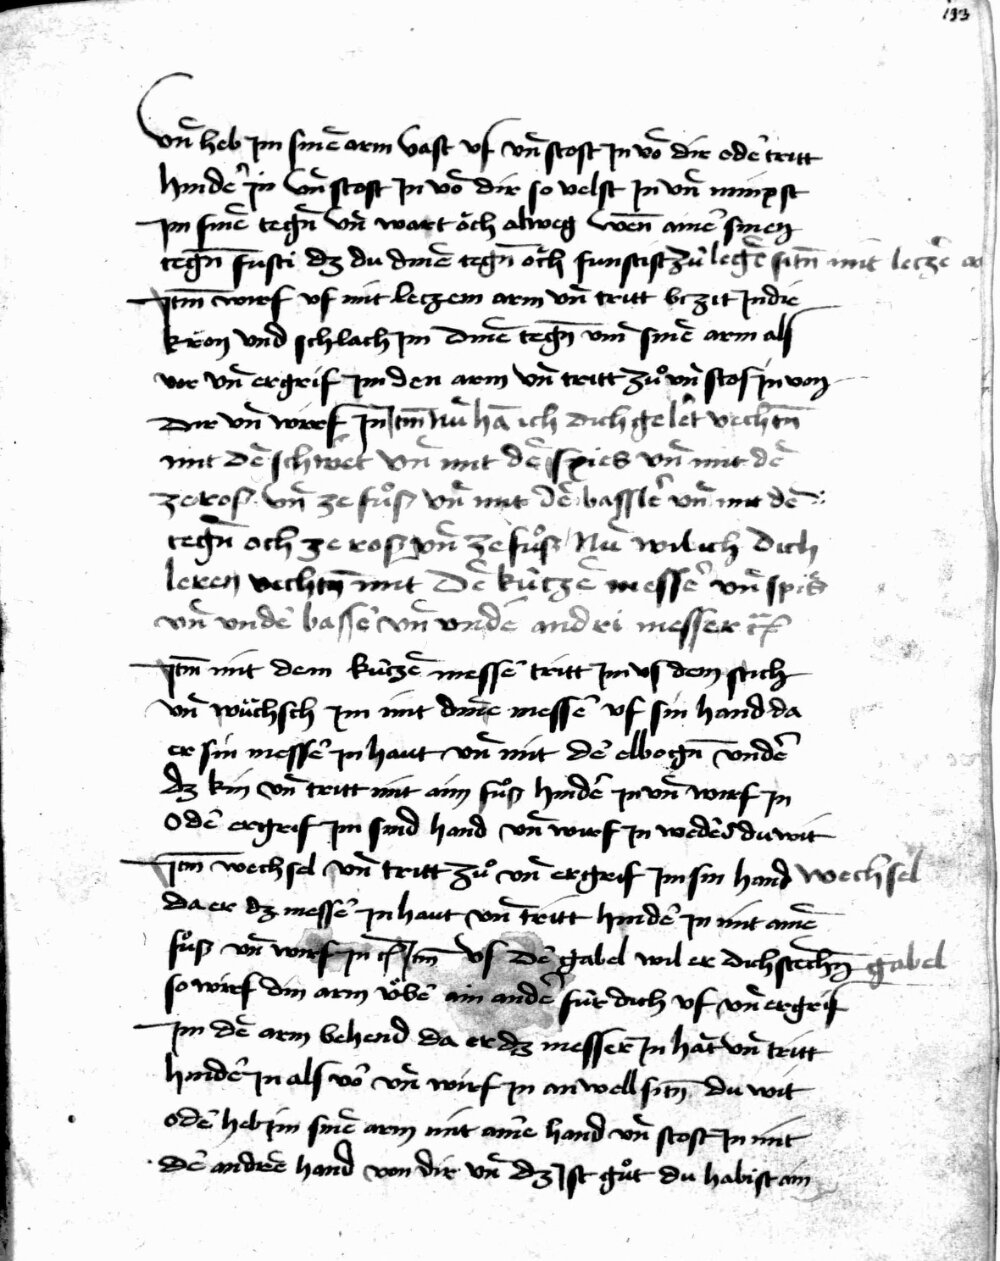 133
vn̄ heb im sinē arm vast vf vn̄ stost in vō dir odē tritt
hindē in vn̄ stost in vō dir so velst in vn̄ nimpst
im sinē tegn̄ vn̄ wart ǒch alweg wen̄ aine sinen
tegn̄ fursti dz du dinē tegn̄ ǒch
Itm̄ wirf vf mit leczem arm vn̄ tritt bezit In die
kron vnd schlach im dinē tegn̄ vm̄ sinē arm als
vor vn̄ ergrif im den arm vn̄ tritt zů vn̄ stos in von
dir vn̄ wirf in Itm̄ Nu hā ich dich gelēt vechtn̄
mit dē schwēt vn̄ mit dē spies vn̄ mit dē
ze ros vn̄ ze fůsz vn̄ mit dē basslē vn̄ mit dē
tegn̄ och ze rosz vn̄ ze fůsz Nu wil ich dich
leren vechtn̄ mit dē kurczē messē vn̄ spis
vn̄ vndē vn̄ vndē andri messer
Itm̄ mit dem kurczē messē tritt im vs dem stich
vn̄ wüchsch im mit dinē messē vf sin hand da
er sin messē in haut vn̄ mit dē elbogn̄ vndē
dz kin vn̄ tritt mit aim fůsz hindē in vn̄ wirf in
Odē ergrif im sind hand vn̄ wirf in wedēs du wit
Itm̄ wechsel vn̄ tritt zů vn̄ ergrif im sin hand wechsel
da er dz messē in haut vn̄ tritt hindē in mit ainē
fůsz vn̄ wirf in Itm̄ vs dē gabel wil er dich stechn̄ gabel
so wirf din arm v̊bē ain andē für dich vf vn̄ ergrif
im dē arm behend da er dz messer in hat vn̄ tritt
hindē in als vō vn̄ wirf in an well sitn̄ du wit
odē heb im sinē arm mit ainē hand vn̄ stost in mit
dē andrē hand von dir vn̄ dz Ist gůt du habist ain